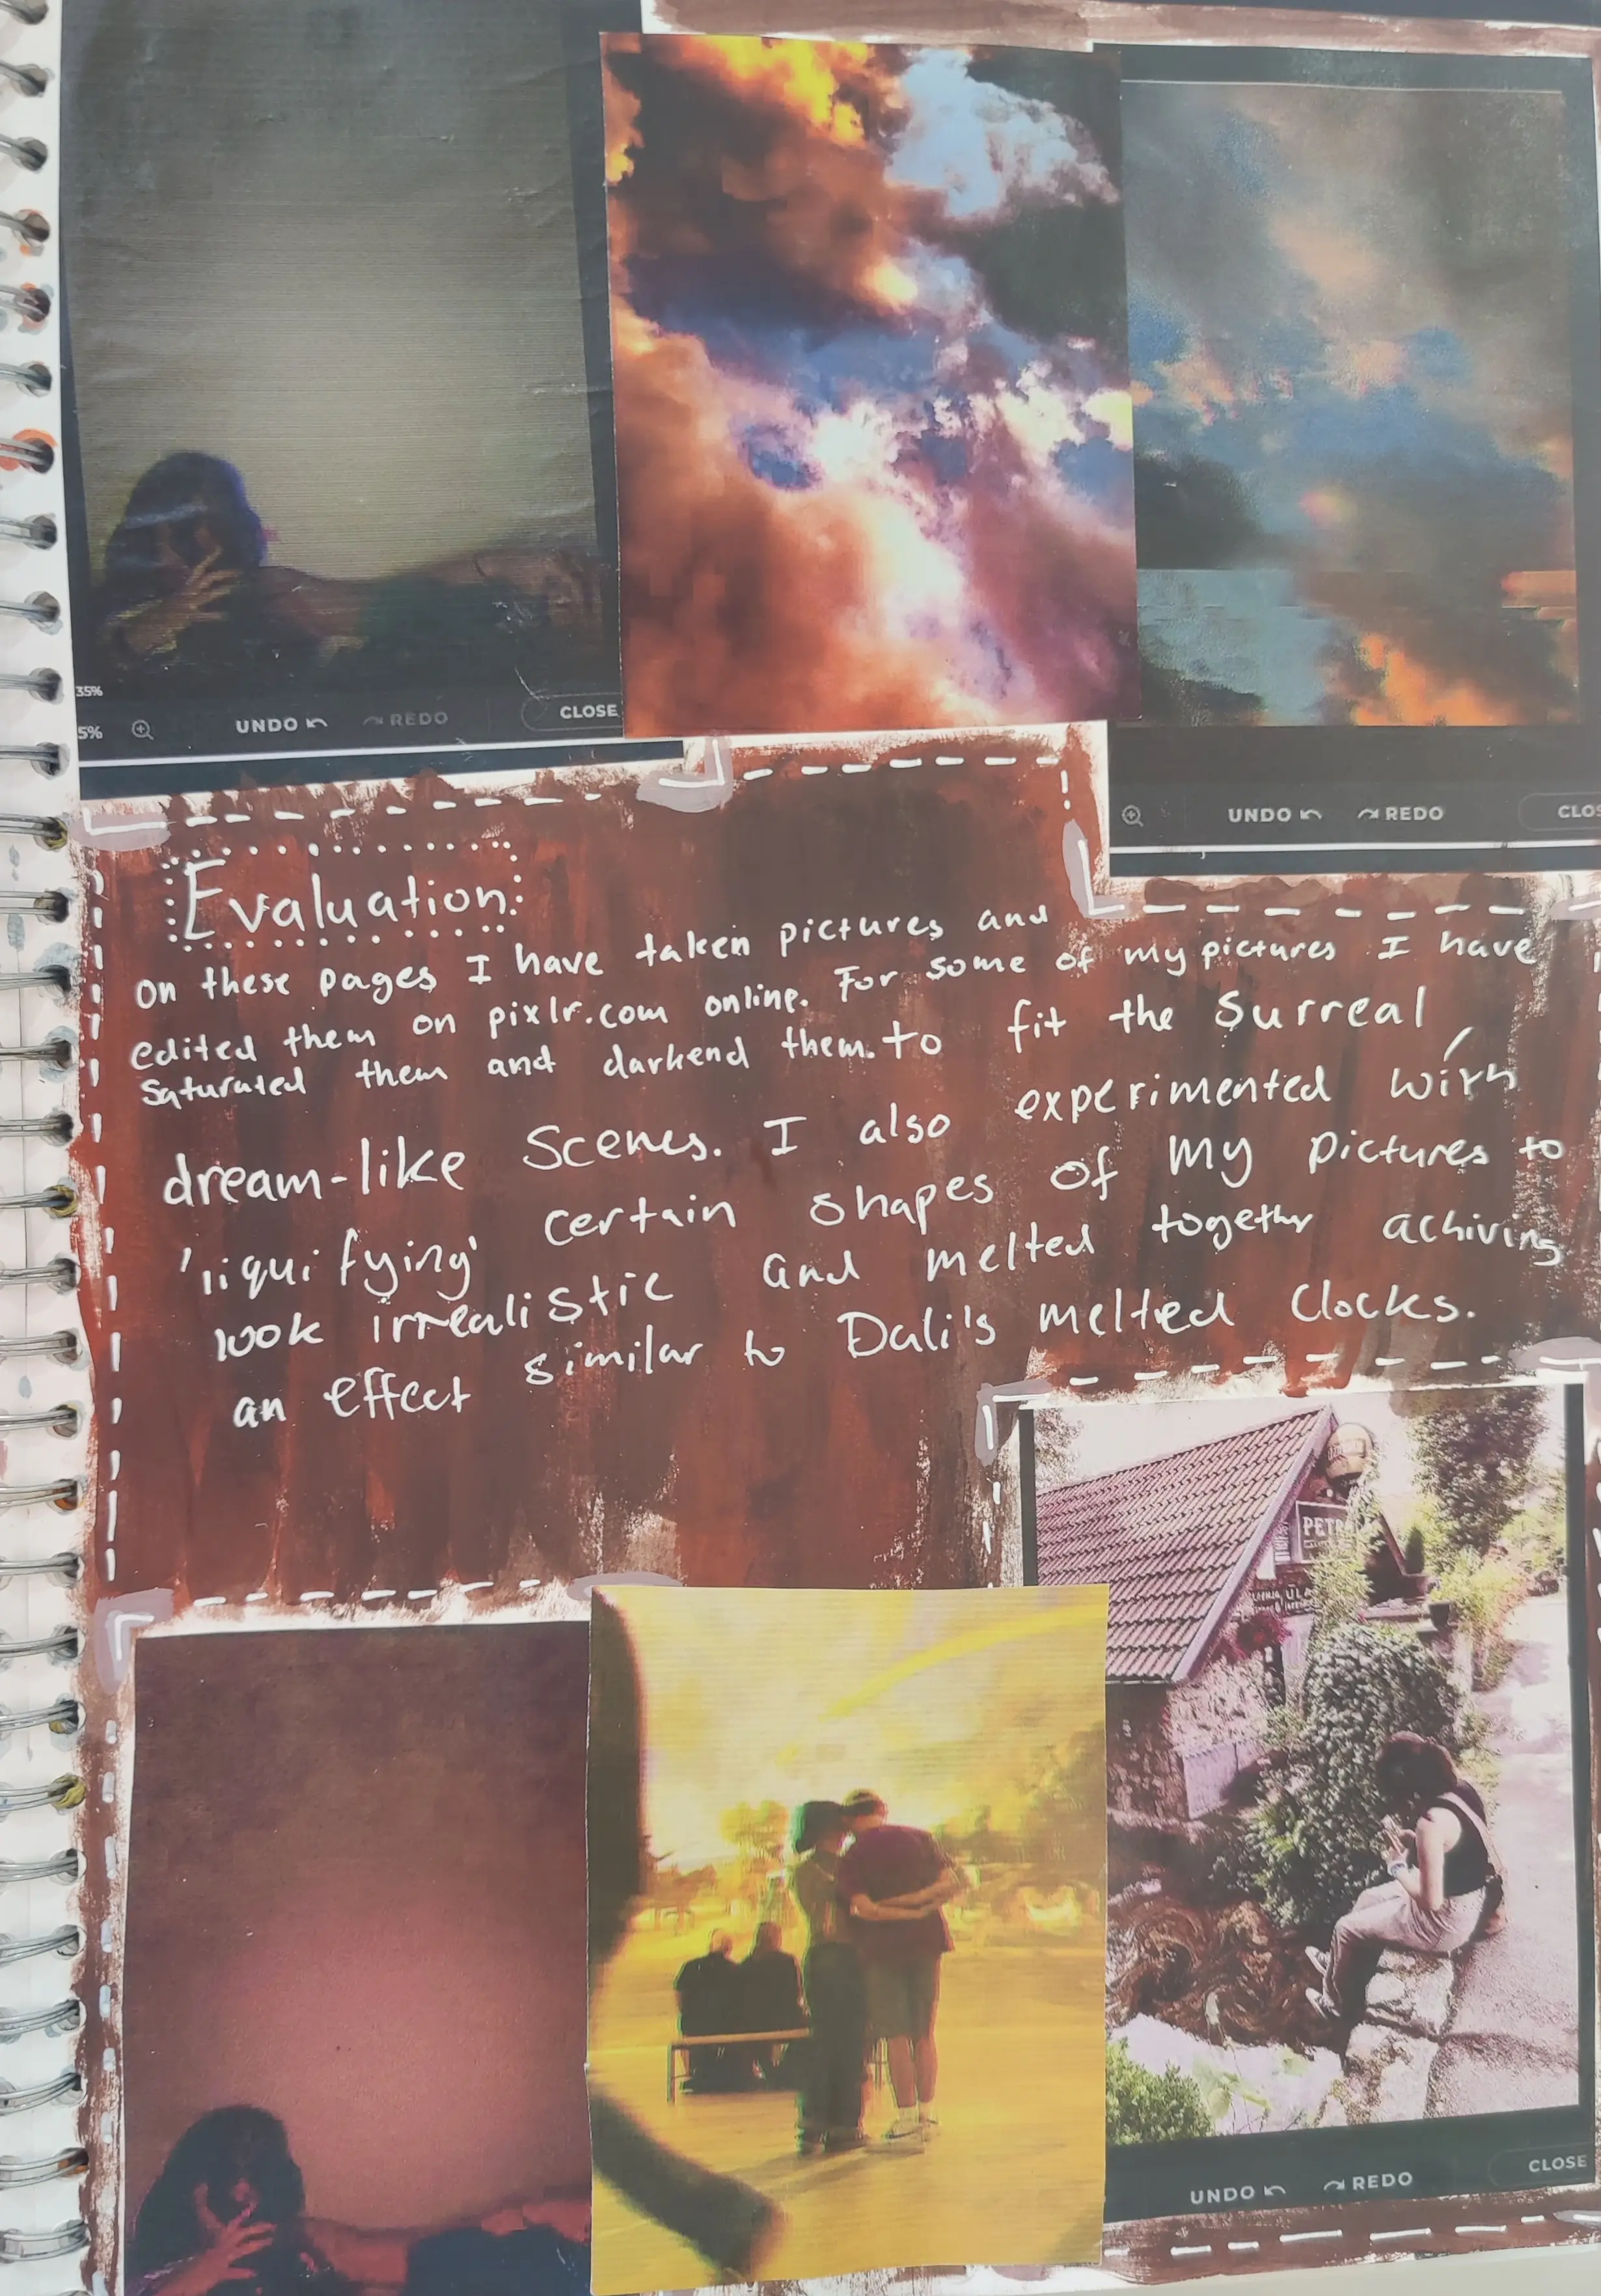 35%
5%
UNDO
REDO
CLOSE
UNDO
REDO
CLOS
Evaluation:
On these pages I have taken pictures and
edited them on pixlr.com online. For some of my pictures I have
Saturated them and darkend them. to fit the surreal,
dream-like Scenes. I also experimented with
'liquifying' certain shapes of my pictures to
look irrealistic and melted together achiving
an effect similar to Dali's melted Clocks.
PETR
ULA
UNDO
REDO
CLOSE